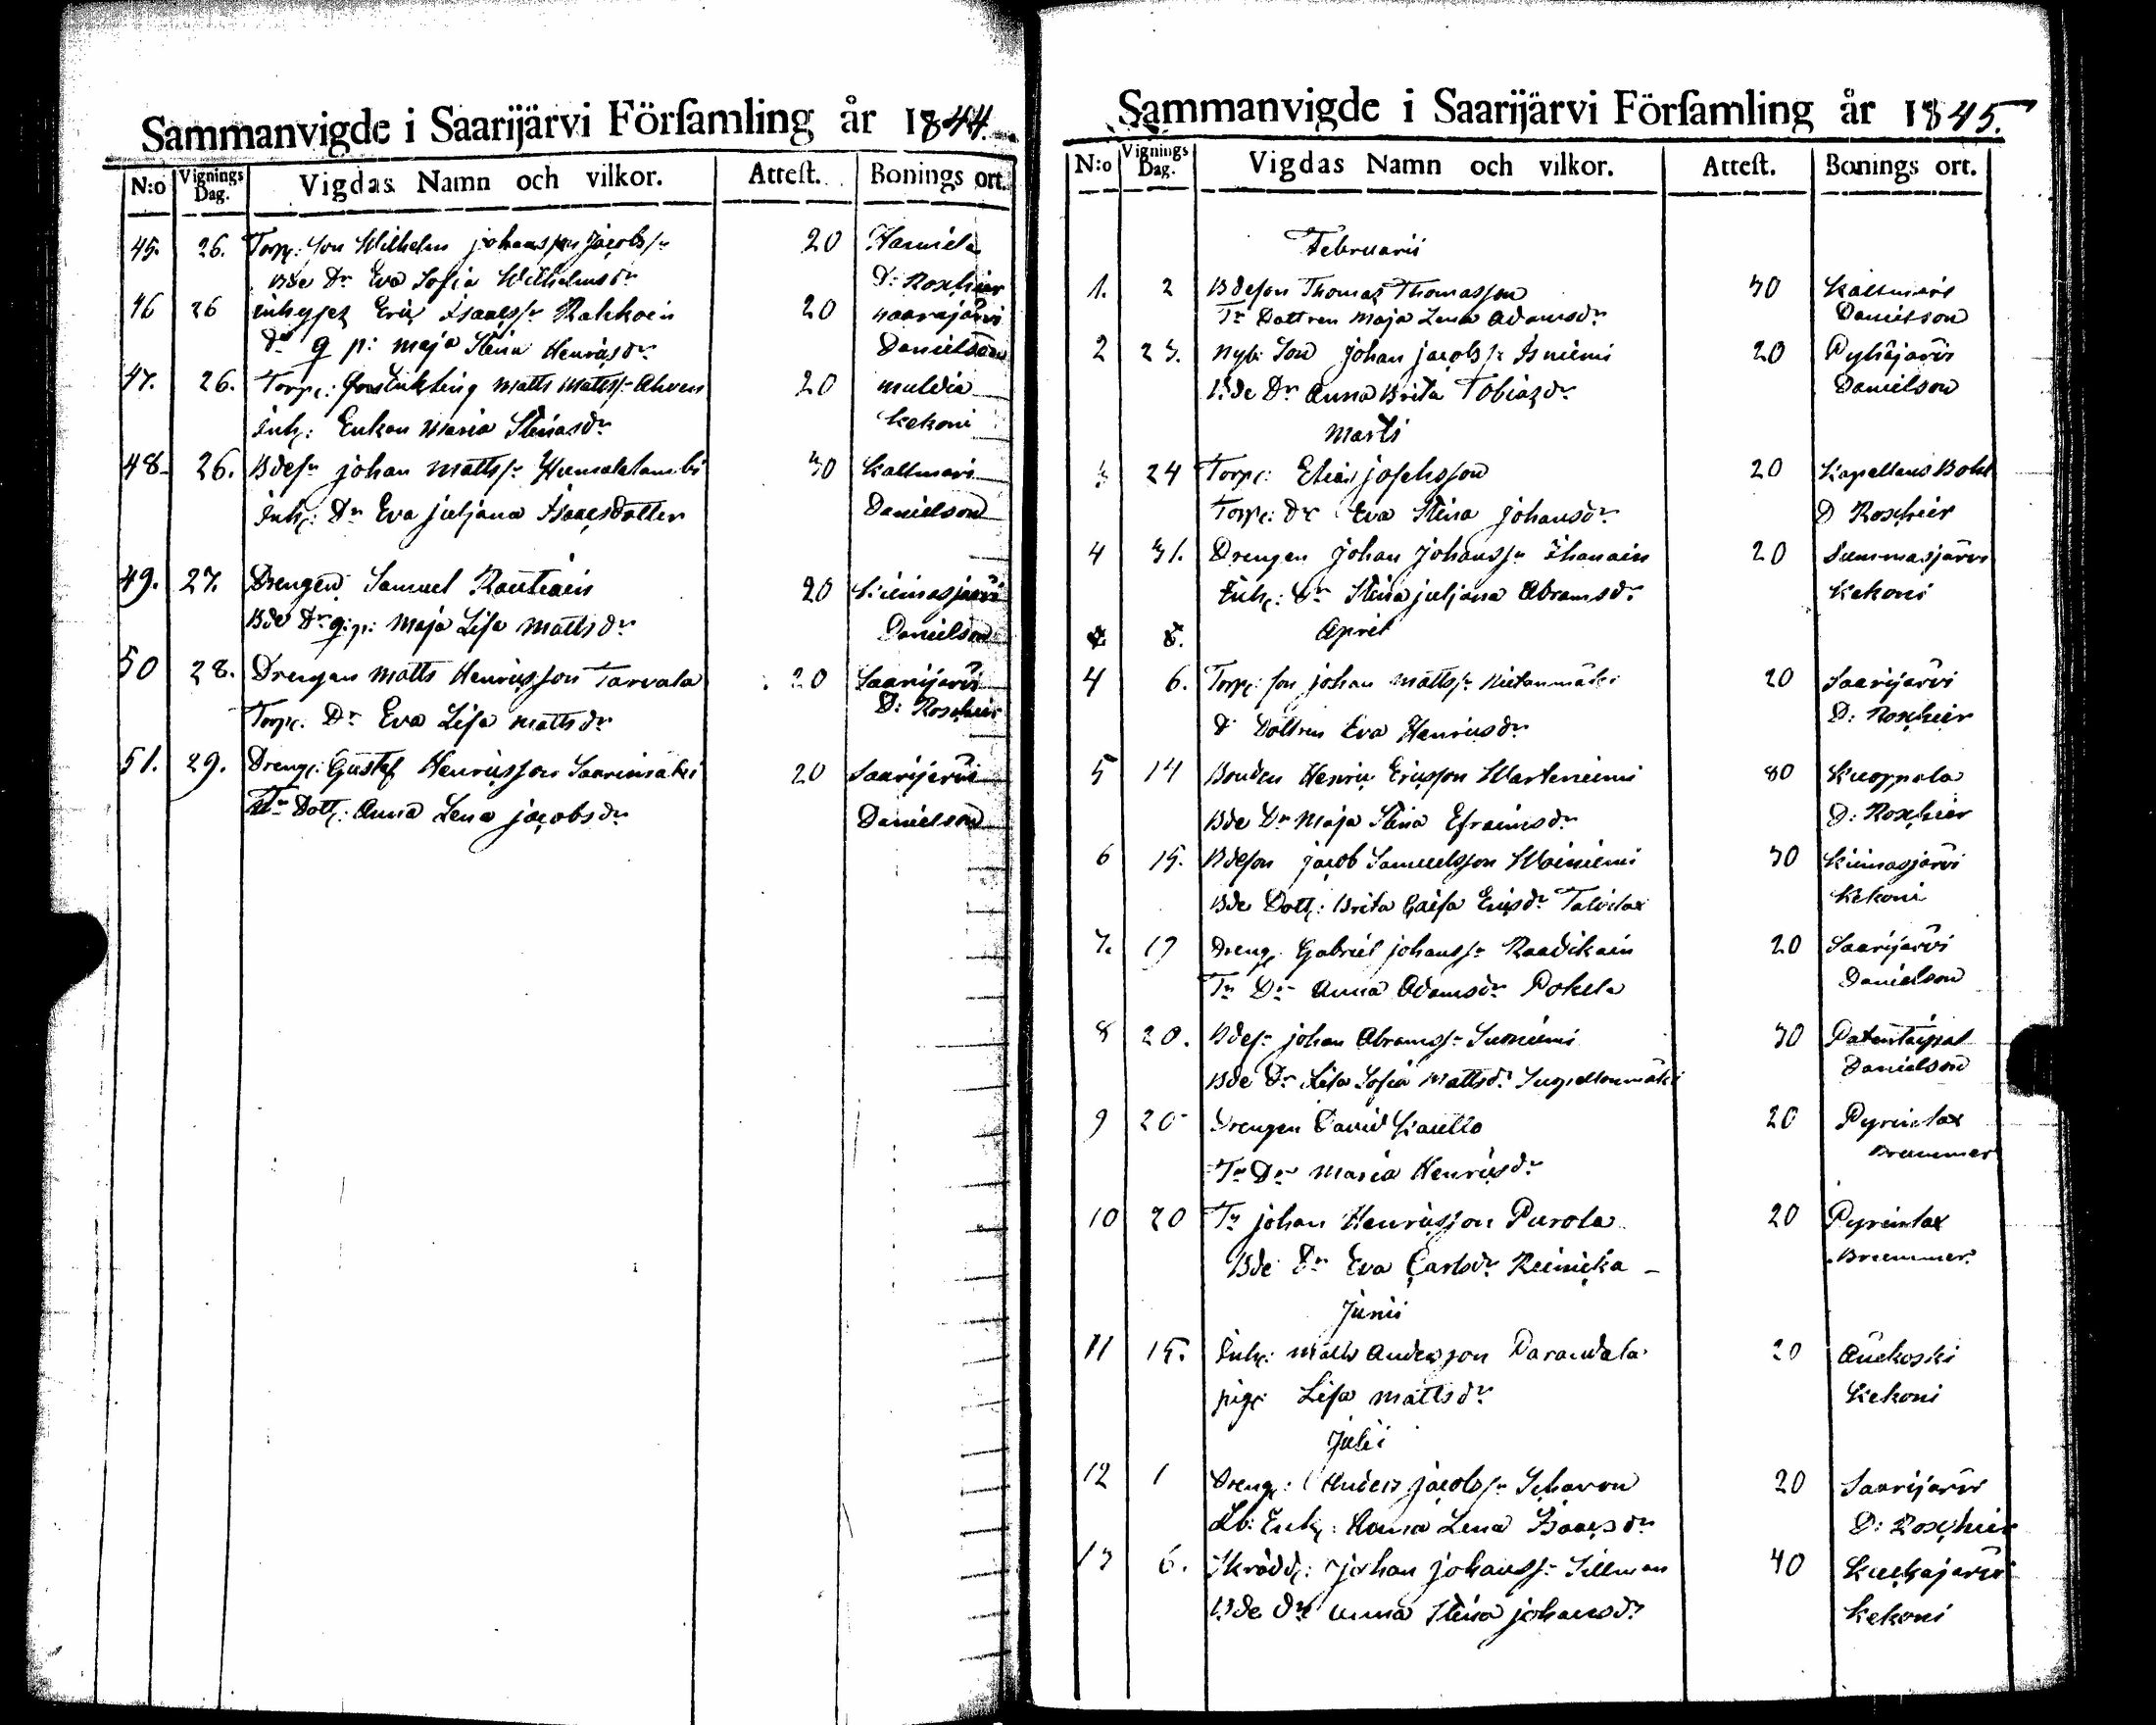 Sammanvigde i Saarijärvi Förſamling år 1844.
N:o Vignings Dag. Vigdas Namn och vilkor. Atteſt. Bonings ort.
45. 26. Torp: Son Wilhelm johansson Jacobss:n 20 Hamiela
Bde Dr Eva Sofia Wilhelmsdr D: Roschier
46 26 inhyses Eric Isaacss:n Rahkoin 20 naarajärvi
Dr q p: Maja Stina Henricsdr Danielson
47. 26. Torp: Inhking Matts Mattss:n Ahven 20 Muldia
Inh: Enkan Maria Stinasdr Kekoni
48. 26. Bdes:n johan Mattss:n Humalalambi 30 Kallmari
Inh: Dr Eva juliana Isaacsdotter Danielson
49. 27. Drengen Samuel Rautiain 20 Kiimasjärvi
Bde Dr q: p: Maja Lisa Mattsdr Danielson
50 28. Drengen Matts Henricsson Tarvala 20 Saarijärvi
Torp. Dr Eva Lisa Mattsdr D: Roschier
51. 29. Dreng: Gustaf Henricsson Saarimäki 20 Saarijärvi
Dott: Anna Lena jacobsdr Danielson
Sammanvigde i Saarijärvi Förſamling år 1845.
N:o Vignings Dag. Vigdas Namn och vilkor. Atteſt. Bonings ort.
Februarii
1. 2 Bdeson Thomas Thomasson 30 Kallmari
Tr Dottren Maja Lena Adamsdr Danielson
2 23. Nyb: Son johan jacobss:n Isniemi 20 Pyhäjärvi
Bde Dr Anna Brita Tobiasdr Danielson
Marti
3 24 Torp: Elias josephsson 20 Kapellans Bohl
Torp: Dr Eva Stina johansdr D Roschier
4 31. Drengen johan johanss:n Ihanain 20 Summasjärvi
Inh: Dr Stina juliana Abramsdr Kekoni
April
4 6. Torp: son johan Mattss:n Hietanmäki 20 Saarijärvi
D Dottren Eva Henricsdr D: Roschier
5 14 Bonden Henric Ericsson Warteniemi 80 Kuoppala
Bde Dr Maja Stina Efraimsdr D: Roschier
6 15. Bdeson jacob Samuelsson Wainiemi 30 Kiimasjärvi
Bde Dott: Brita Caisa Ericsdr Talvilax Kekoni
7. 19 Dreng. Gabriel johanss:n Raadikain 20 Saarijärvi
Tr Dr Anna Adamsdr Pokela Danielson
8 20. Bdes:n johan Abramss:n Sumiemi 30 Patentaipal
Bde Dr Lisa Sofia Mattsdr Suopellonmäki Danielson
9 20 Drengen David Kautto 20 Pyrinlax
Tr Dr Maria Henricsdr Bremmer
10 20 Tr johan Henricsson Purola 20 Pyreinlax
Bde Dr Eva Carlsdr Reinicka – Bremmer
Junii
11 15. Inh: Matts Andersson Parandala 20 Änekoski
pig: Lisa Mattsdr Kekoni
Julii
12 1 Dreng: Anders jacobss:n Scharon 20 Saarijärvi
Lb: Enk: Anna Lena Isaacsdr D: Roschier
13 6. Skrädd: johan johanss:n Sillman 40 Kuckajärvi
Bde Dr Anna Stina johansdr Kekoni